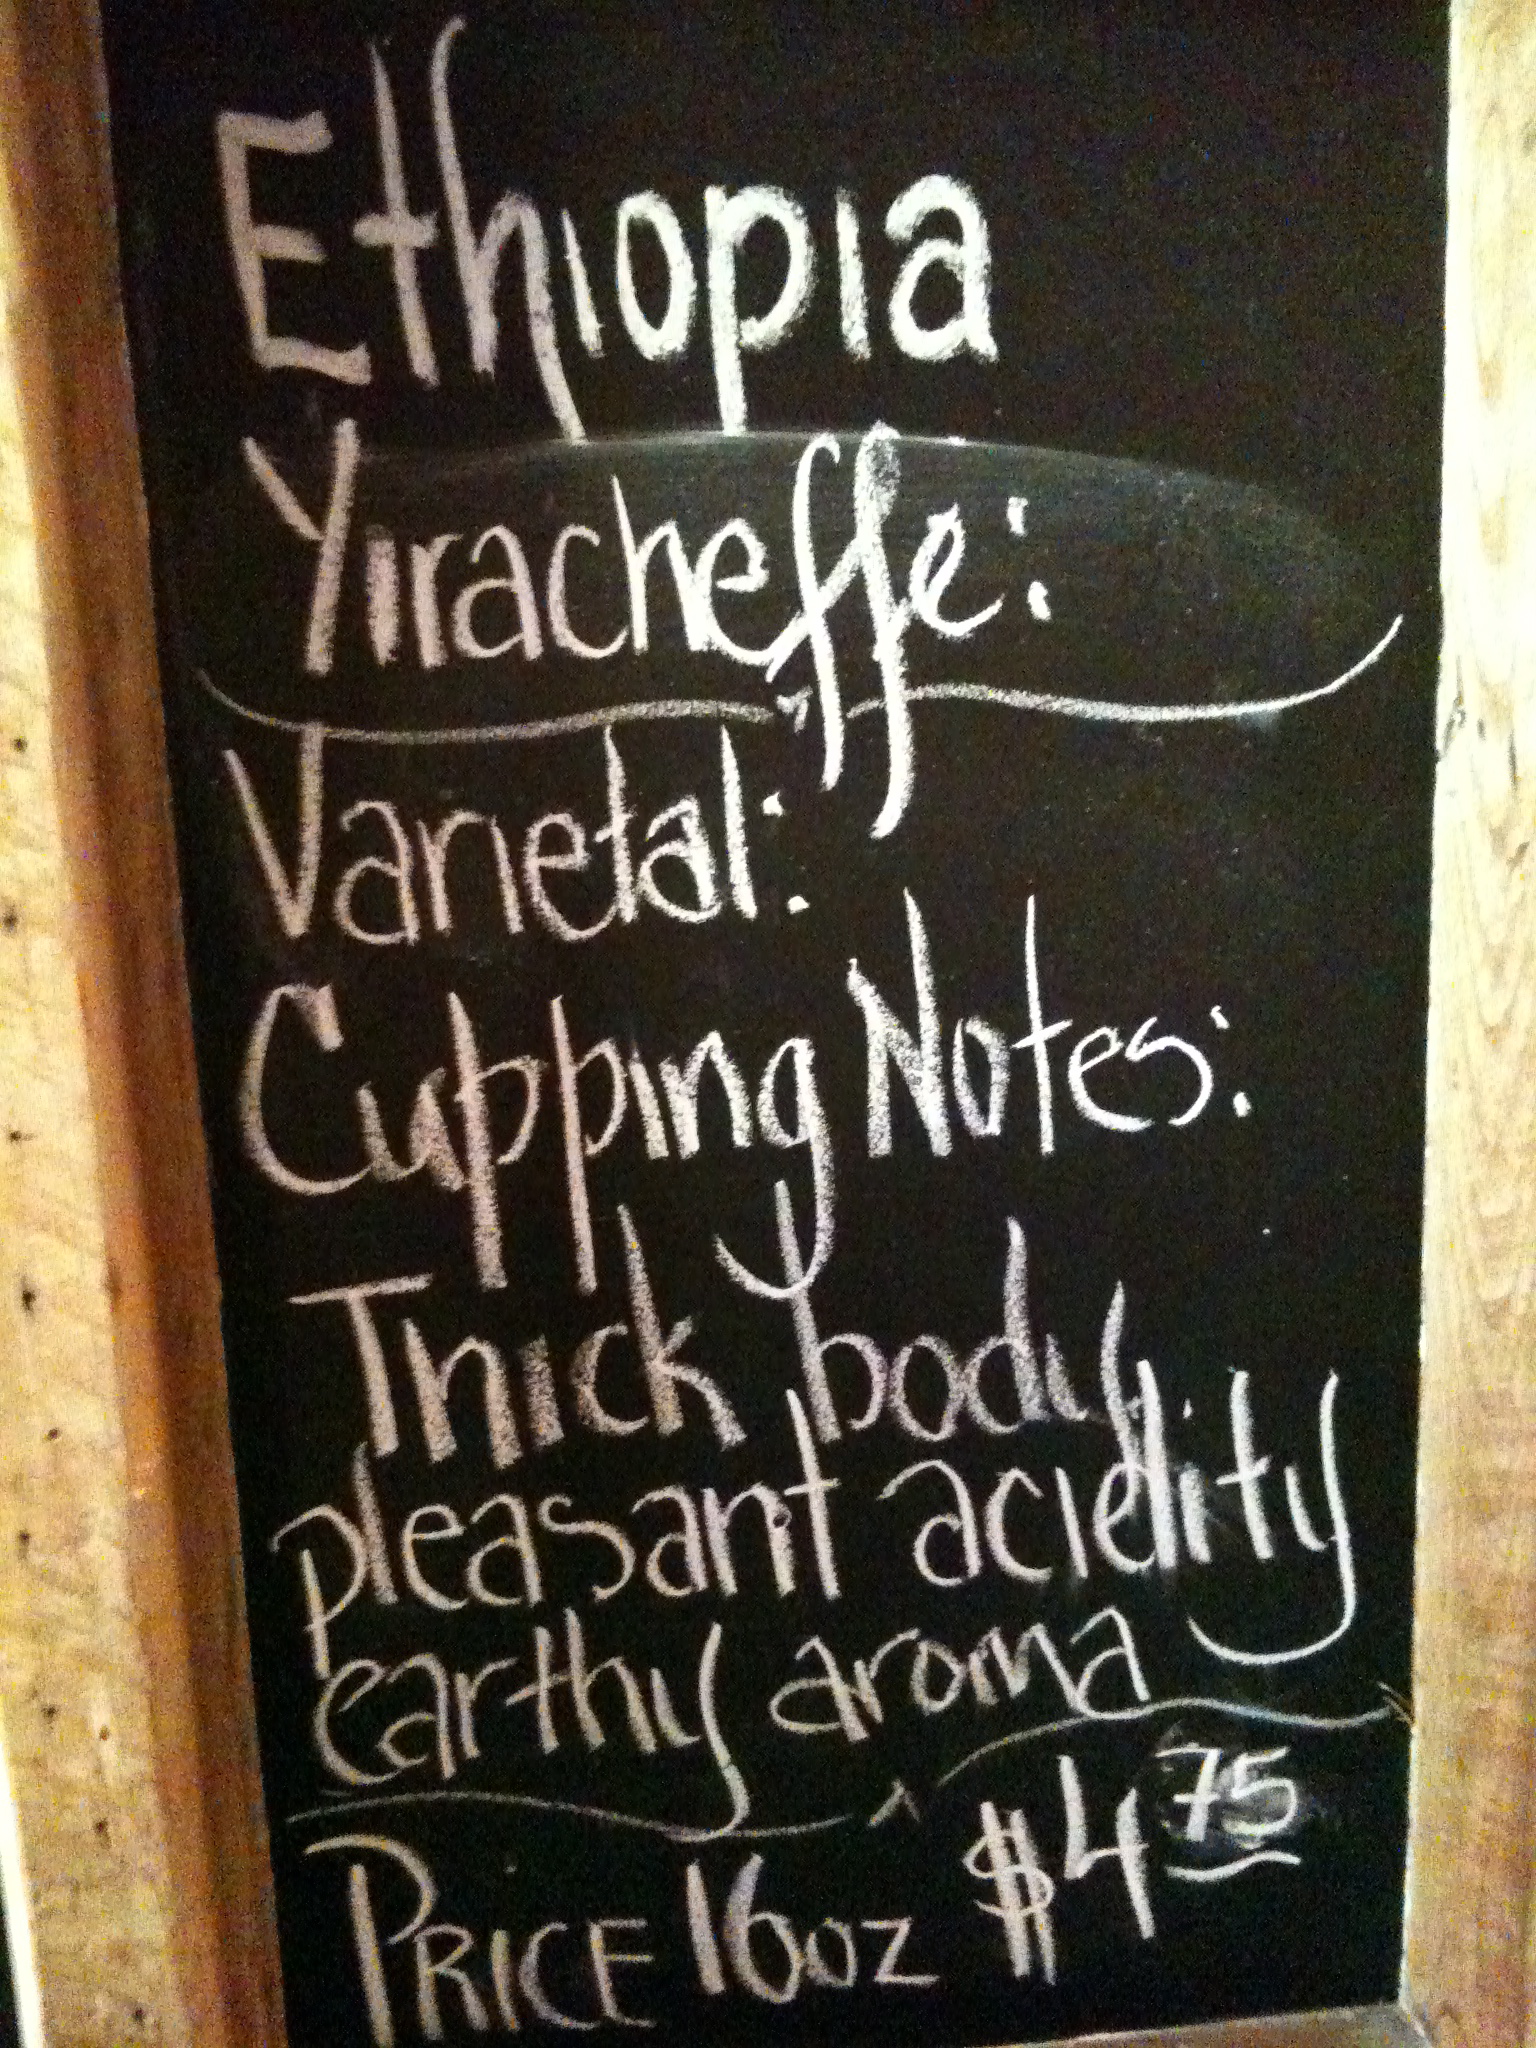 Ethiopia
Yiracheffe:
Varietal:
Cupping Notes:
Thick body,
pleasant acidity
earthy aroma
PRICE 16oz $4 75